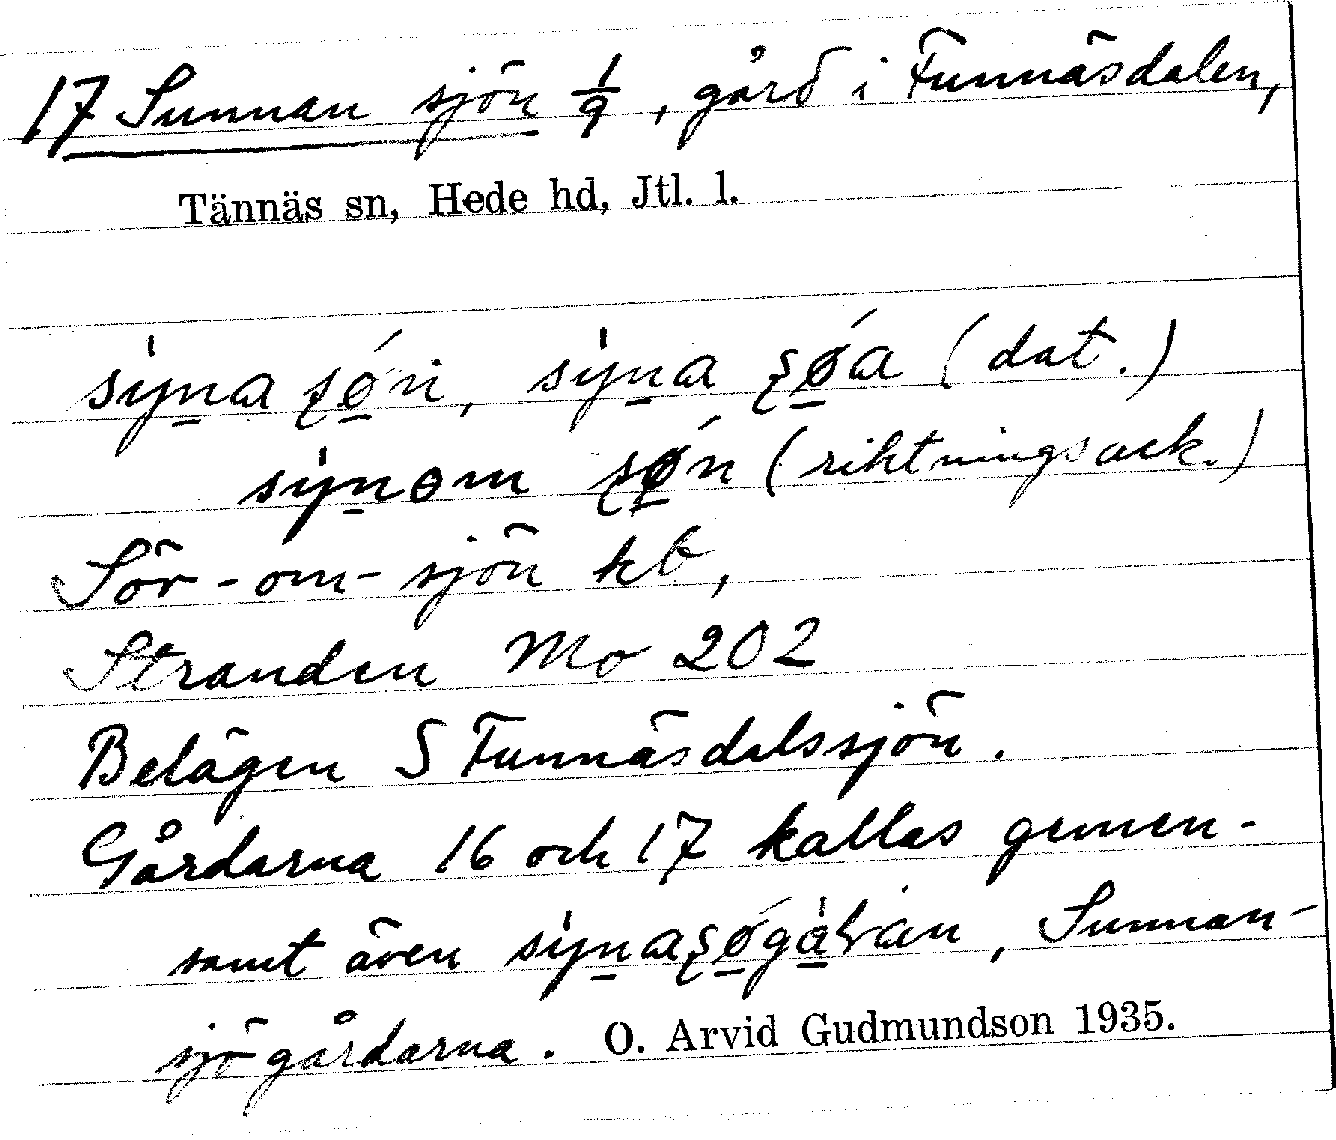 17 Sunnan sjön 1/9, gård i Funnäsdalen,
Tännäs sn, Hede hd, Jtl. l.
syna ʂøn, syna ʂøa (dat.)
synom ʂøn (riktningsack.)
Sör-om-sjön kb,
Stranden Mo 202
Belägen S Funnäsdalssjön.
Gårdarna 16 och 17 kallas gemen-
samt även , Sunnan-
sjögårdarna. O. Arvid Gudmundson 1935.